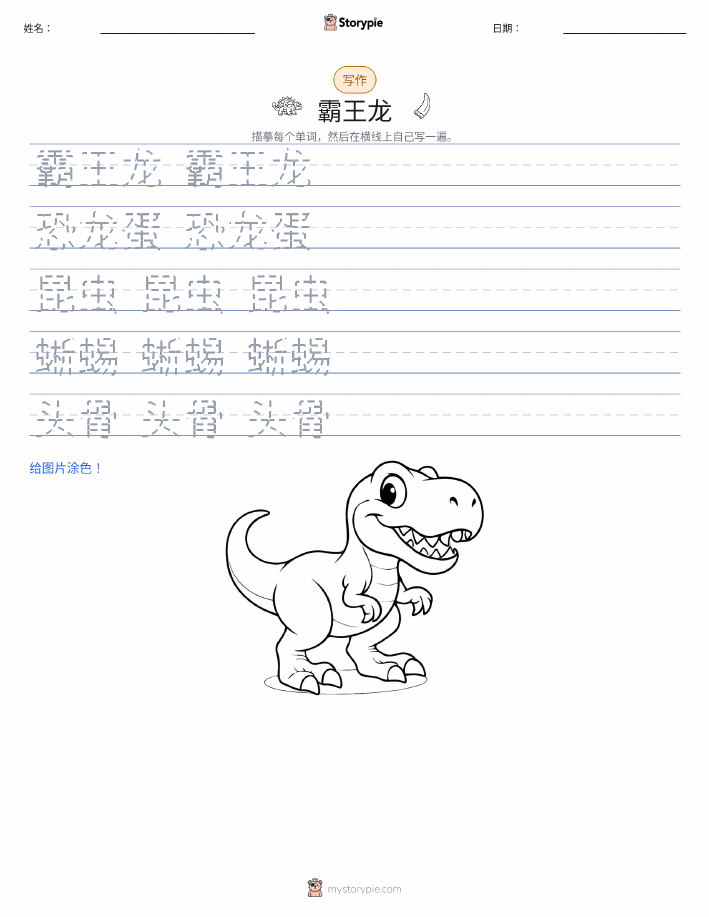 姓名：
Storypie
日期：
写作
霸王龙
描摹每个单词，然后在横线上自己写一遍。
霸王龙 霸王龙
恐龙蛋 恐龙蛋
昆虫 昆虫 昆虫
蜥蜴 蜥蜴 蜥蜴
头骨 头骨 头骨
给图片涂色！
mystorypie.com